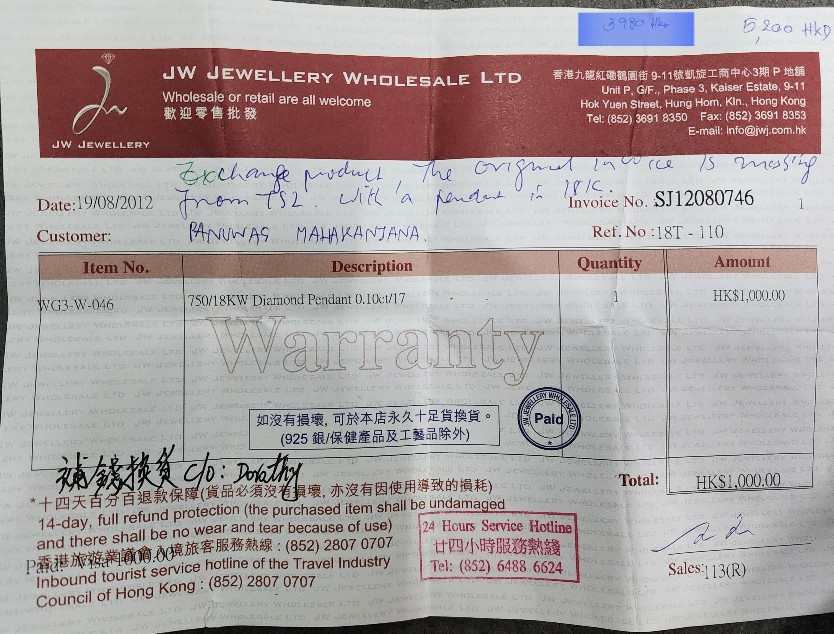 3980 HKD
5,200 HKD
JW JEWELLERY WHOLESALE LTD
Wholesale or retail are all welcome
歡迎零售批發
JW JEWELLERY
香港九龍紅磡鶴園街 9-11號凱旋工商中心3期 P 地舖
Unit P, G/F., Phase 3, Kaiser Estate, 9-11
Hok Yuen Street, Hung Hom, Kln., Hong Kong
Tel: (852) 3691 8350 Fax: (852) 3691 8353
E-mail: info@jwj.com.hk
Exchange product The original invoice is missing
from TS2. with a pendant in 18K.
Date:19/08/2012
Invoice No. :SJ12080746
1
Customer: PANUWAS MAHAKANJANA.
Ref. No :18T - 110
Item No. Description Quantity Amount
WG3-W-046 750/18KW Diamond Pendant 0.10ct/17 1 HK$1,000.00
Warranty
如沒有損壞, 可於本店永久十足貨換貨。
(925 銀/保健產品及工藝品除外)
JW JEWELLERY WHOLESALE LTD
Paid
補錢換貨 C/O: Dorathy
Total: HK$1,000.00
*十四天百分百退款保障(貨品必須沒有損壞, 亦沒有因使用導致的損耗)
14-day, full refund protection (the purchased item shall be undamaged
and there shall be no wear and tear because of use)
香港旅遊業議會入境旅客服務熱線 : (852) 2807 0707
Paid: Visa 1000.00
Inbound tourist service hotline of the Travel Industry
Council of Hong Kong : (852) 2807 0707
24 Hours Service Hotline
廿四小時服務熱綫
Tel: (852) 6488 6624
Sales:113(R)